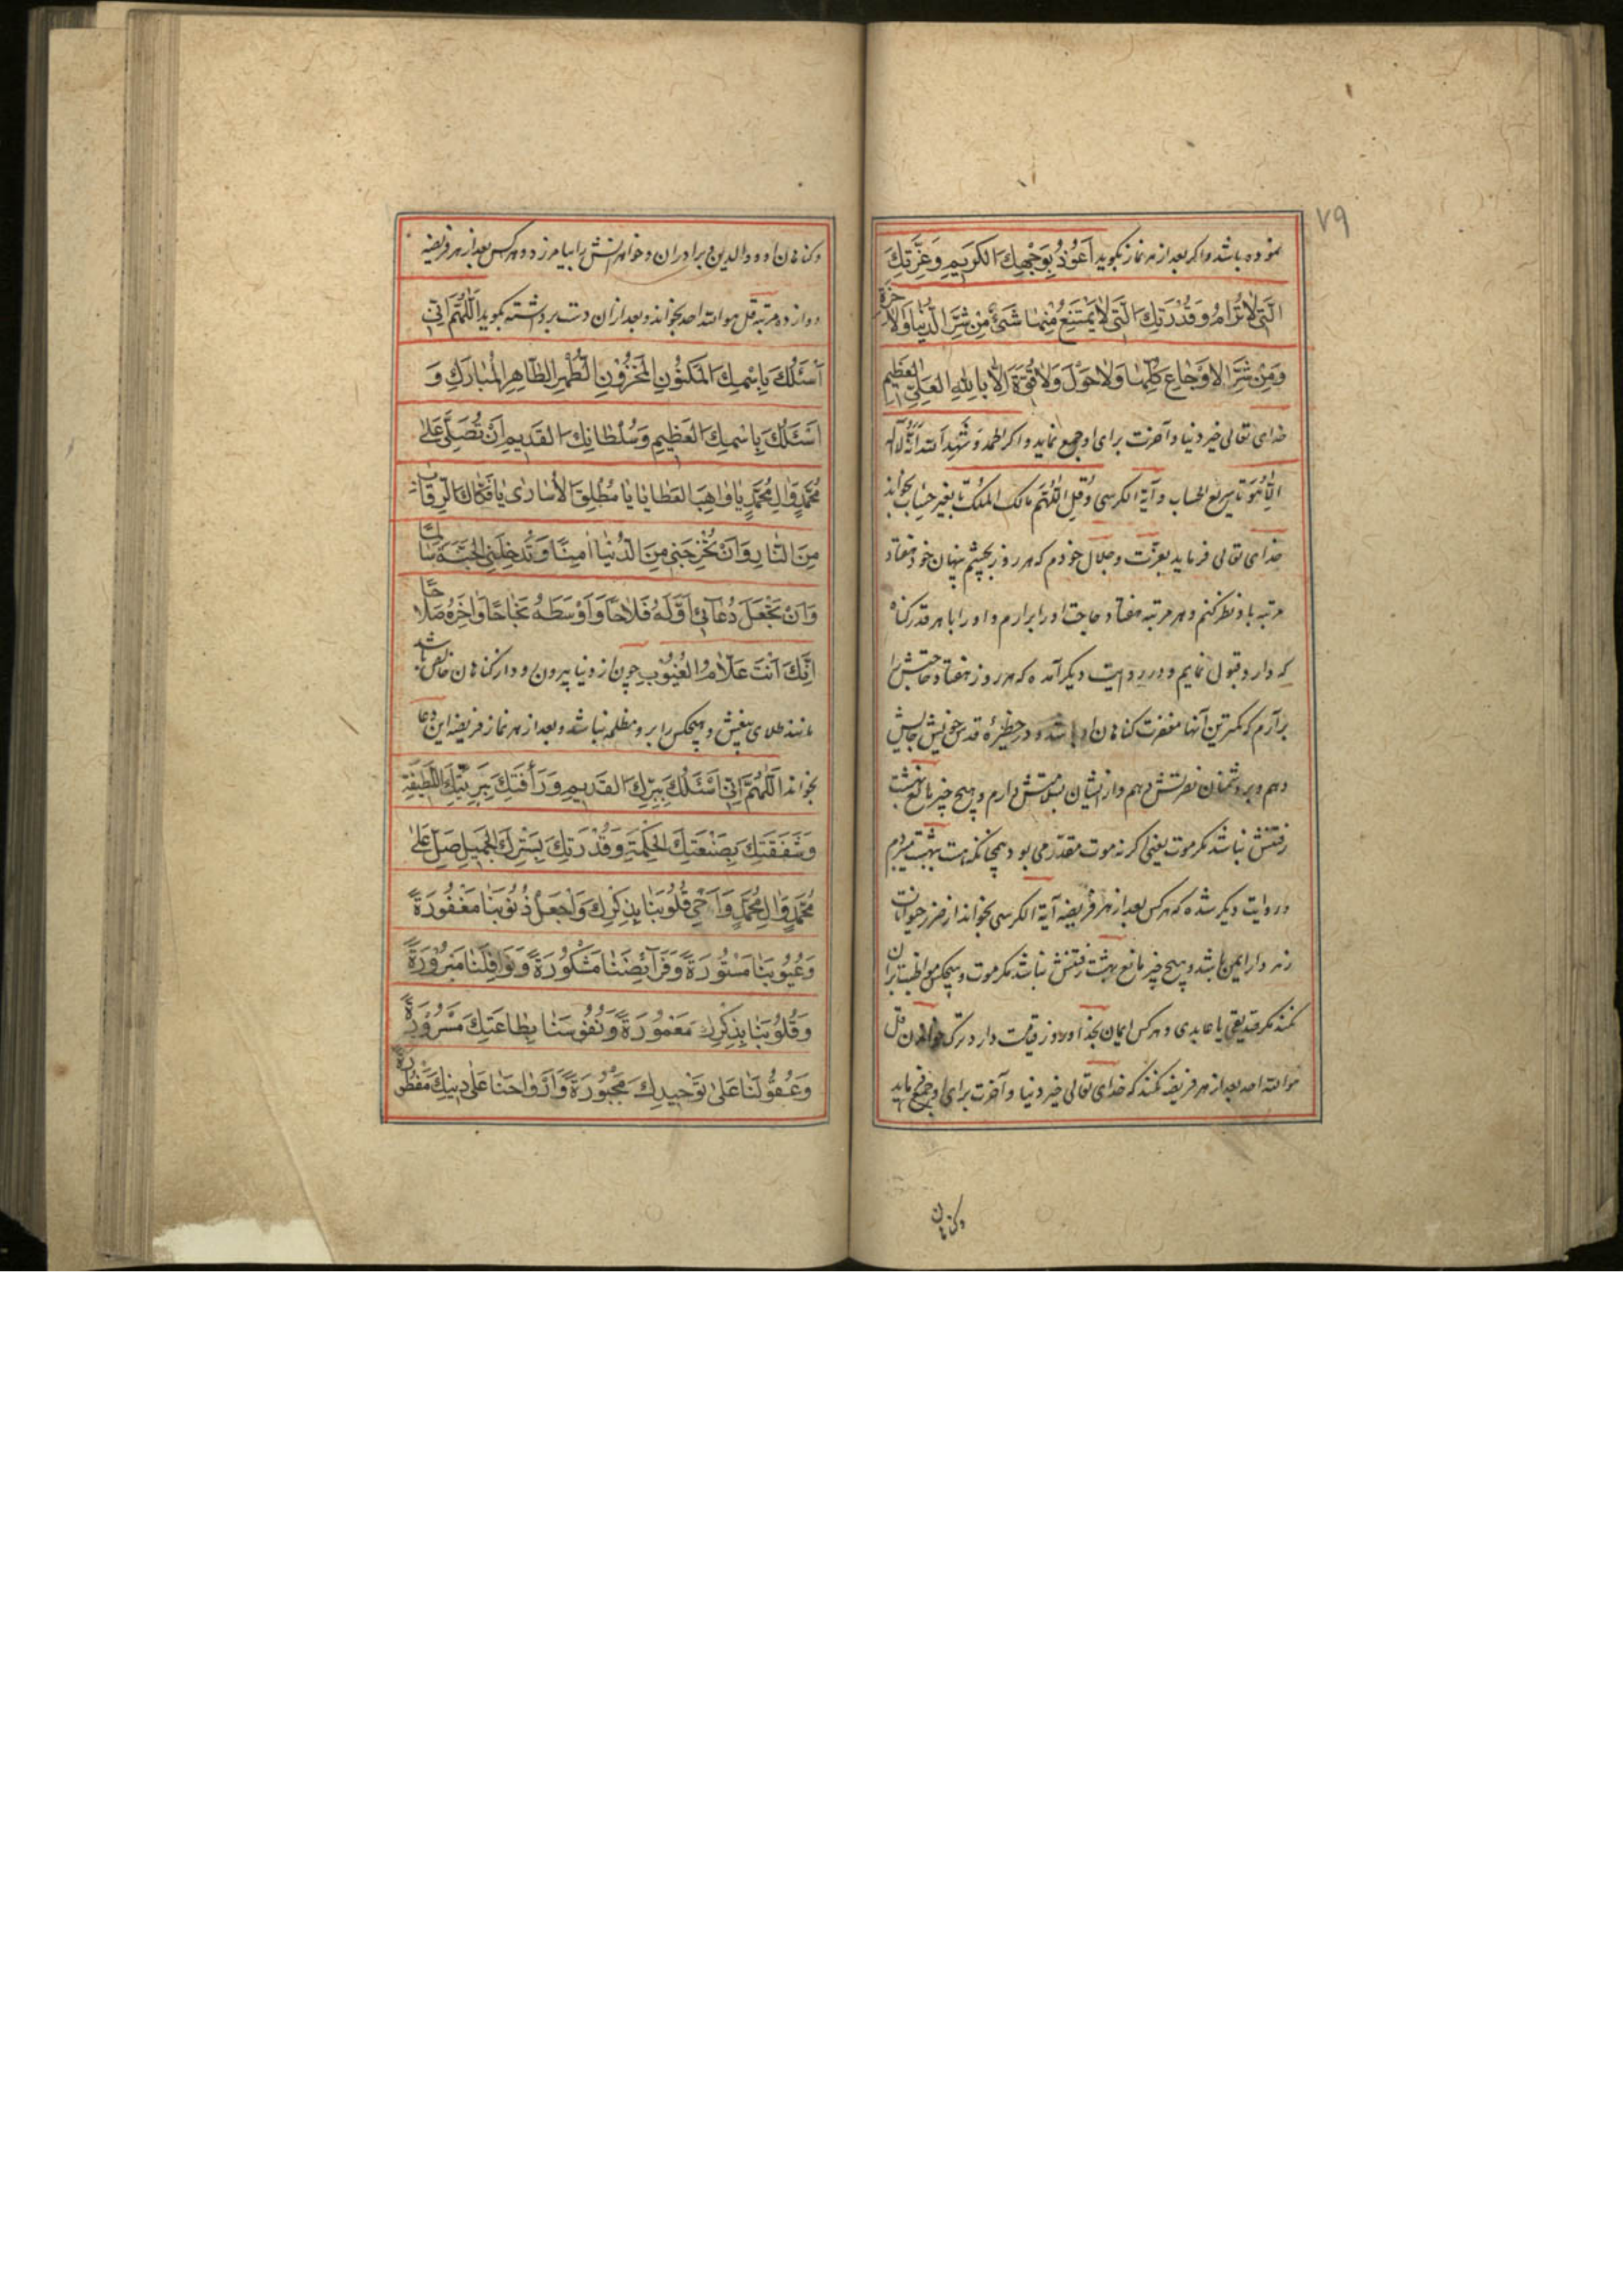 ۷۹
نموده باشد و اکر بعد از هر نماز بکوید اَعُوذُ بِوَجْهِكَ الْكَرِيمِ وَعِزَّتِكَ
الَّتِى لاٰتُرٰامُ وَقُدْرَتِكَ الَّتِى لاٰيَمْتَنِعُ مِنْهٰا شَىْءٌ مِنْ شَرِّ الدُّنْيٰا وَالاٰخِرَةِ
وَمِنْ شَرِّ الاَوْجٰاعِ كُلِّهٰا وَلاٰحَوْلَ وَلاٰقُوَّةَ اِلاّٰ بِاللّٰهِ الْعَلِىِّ الْعَظِيمِ
خدای تعالی خیر دنیا و آخرت برای او جمع نماید و اکر الحمد و شَهِدَ اللّه اَنَّهُ لاٰاِلٰهَ
اِلّاٰهُوَ تا سریع الحساب و آیة الکرسی و قُلِ اللّٰهُمَّ مالک الملک تا بغیر حساب بخواند
خدای تعالی فرماید بعزّت و جلال خودم که هر روز بچشم پنهان خود هفتاد
مرتبه باو نظر کنم و هر مرتبه هفتاد حاجت او را برارم و او را با هر قدر کناه
که دارد قبول نمایم و در روایت دیکر آمده که هر روز هفتاد حاجتش را
برآرم که کمترین آنها مغفرت کناهان او باشد و در حظیرهٔ قدس خویش جایش
دهم و بر دشمنان نصرتش دهم و از ایشان دارم و هیچ چیز مانع بهشت
رفتنش نباشد مکر موت یعنی اکر نه موت مقدّر می بود همچنانکه هست بهشت میبردم
و در روایت دیکر شده که هر کس بعد از هر فریضه آیة الکرسی بخواند از ضرر حیوانات
زهر دار ایمن باشد و هیچ چیز مانع بهشت رفتنش نباشد مکر موت و هیچکس مواظبت بران
نمیکند مکر صدیقی یا عابدی و هر کس ایمان بخدا و روز قیامت دارد ترک خواندن قل
هو اللّه احد بعد از هر فریضه نمیکند که خدای تعالی خیر دنیا و آخرت برای او جمع نماید
وکناهان
وکناهان او و والدین و برادران و خواهرانش را بیامرزد و هر کس بعد از هر فریضه
دوازده مرتبه قل هو اللّه احد بخواند و بعد ازان دست برداشته بکوید اَللّٰهُمَّ اِنِّى
اَسْئَلُكَ بِاِسْمِكَ الْمَكْنُونِ الْمَخْزُونِ الطُّهْرِ الطّٰاهِرِ الْمُبٰارَكِ وَ
اَسْئَلُكَ بِاِسْمِكَ الْعَظِيمِ وَسُلْطٰانِكَ الْقَدِيمِ اَنْ تُصَلِّىَ عَلىٰ
مُحَمَّدٍ وَاٰلِ مُحَمَّدٍ يٰاوٰاهِبَ الْعَطٰايٰا يٰا مُطْلِقَ الاُسٰارىٰ يٰافَكّٰاكَ الرِّقٰابِ
مِنَ النّٰارِ وَاَنْ تُخْرِجَنِى مِنَ الدُّنْيٰا اٰمِنًا وَتُدْخِلَنِى الْجَنَّةَ سٰالِمًا
وَاَنْ تَجْعَلَ دُعٰآئِى اَوَّلَهُ فَلاٰحًا وَاَوْسَطَهُ نَجٰاحًا وَاٰخِرَهُ صَلاٰحًا
اِنَّكَ اَنْتَ عَلاّٰمُ الْغُيُوبِ چون از دنیا بیرون رود از کناهان خالص باشد
مانند طلای بیغش و هیچکس را بر و مظلمه نباشد و بعد از هر نماز فریضه این دعا
بخواند اَللّٰهُمَّ اِنِّى اَسْئَلُكَ بِبِرِّكَ الْقَدِيمِ وَرَأْفَتِكَ بِبَرِيَّتِكَ اللَّطِيفَةِ
وَشَفَقَتِكَ بِصَنْعَتِكَ الْحِكْمَةِ وَقُدْرَتِكَ بِسَتْرِكَ الْجَمِيلِ صَلِّ عَلىٰ
مُحَمَّدٍ وَاٰلِ مُحَمَّدٍ وَاَحْىِ قُلُوبَنٰا بِذِكْرِكَ وَاجْعَلْ ذُنُوبَنٰا مَغْفُورَةً
وَعُيُوبَنٰا مَسْتُورَةً وَفَرٰآئِضَنٰا مَشْكُورَةً وَنَوٰافِلَنٰا مَبْرُورَةً
وَقُلُوبَنٰا بِذِكْرِكَ مَعْمُورَةً وَنُفُوسَنٰا بِطٰاعَتِكَ مَسْرُورَةً
وَعُقُولَنٰا عَلىٰ تَوْحِيدِكَ مَجْبُورَةً وَاَرْوٰاحَنٰا عَلىٰ دِينِكَ مَفْطُورَةً